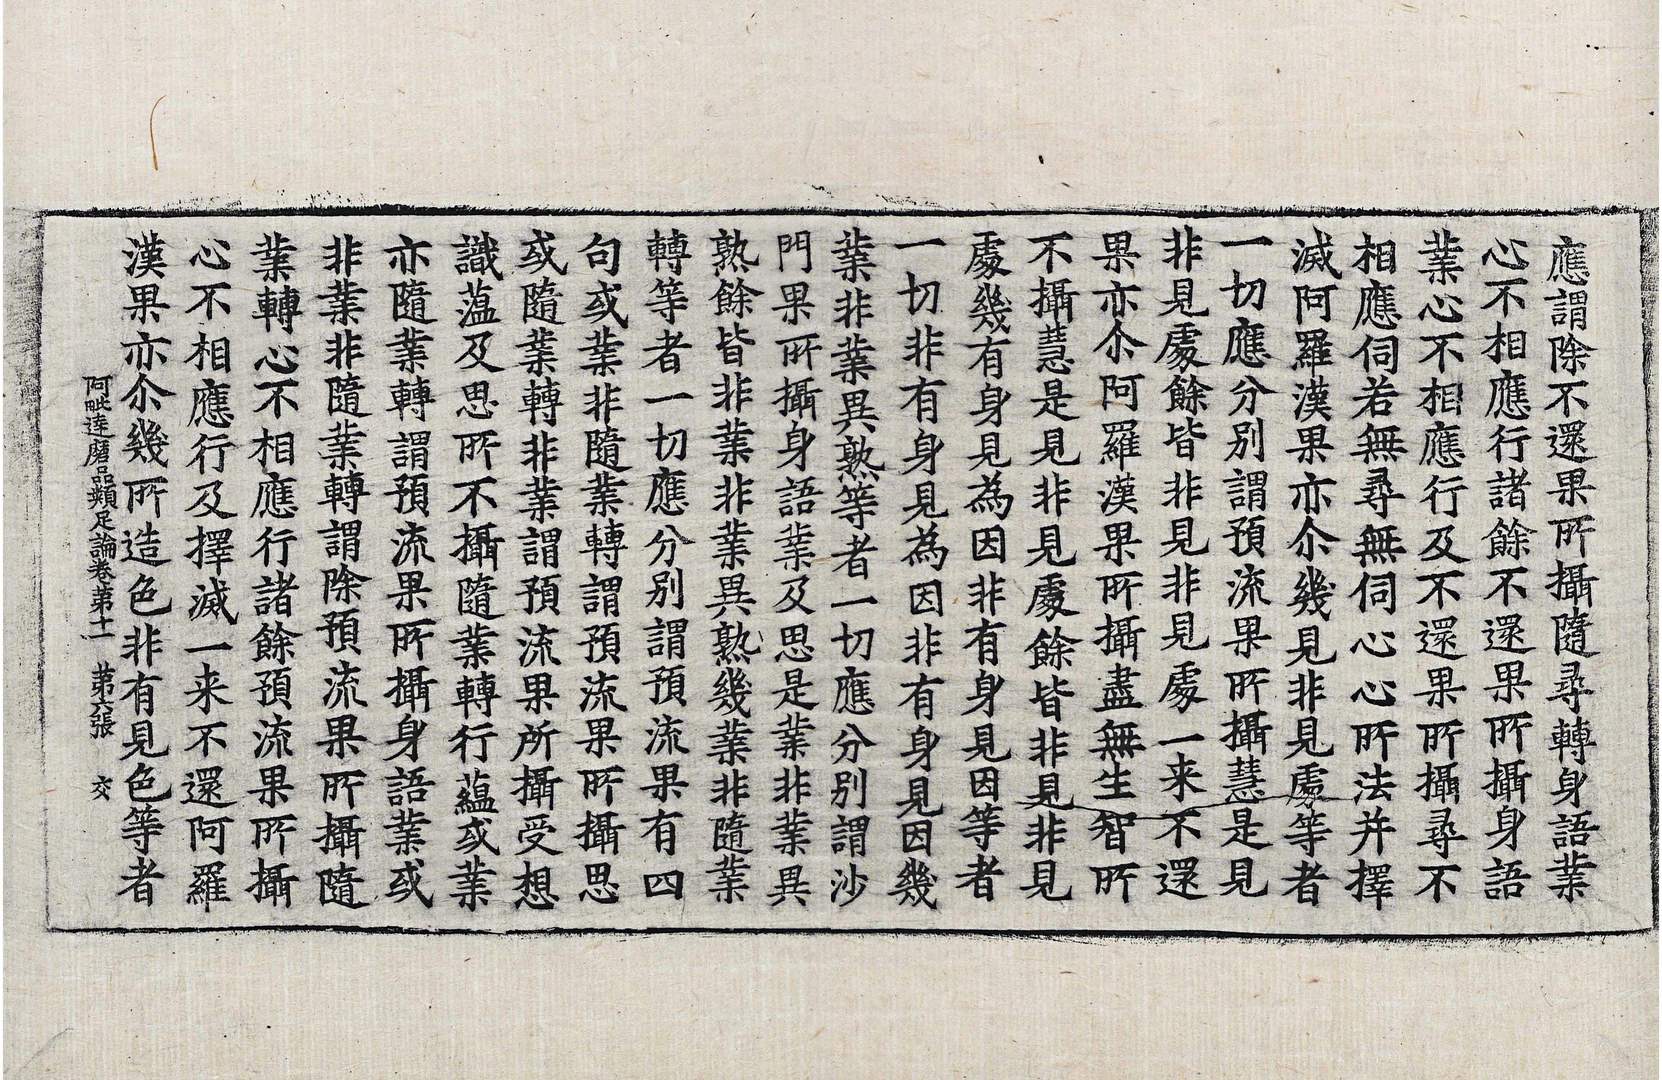 應謂除不還果所攝隨尋轉身語業
心不相應行諸餘不還果所攝身語
業心不相應行及不還果所攝尋不
相應伺若無尋無伺心心所法并擇
滅阿羅漢果亦尒幾見非見處等者
一切應分別謂預流果所攝慧是見
非見處餘皆非見非見處一来不還
果亦尒阿羅漢果所攝盡無生智所
不攝慧是見非見處餘皆非見非見
處幾有身見為因非有身見因等者
一切非有身見為因非有身見因幾
業非業異熟等者一切應分別謂沙
門果所攝身語業及思是業非業異
熟餘皆非業非業異熟幾業非隨業
轉等者一切應分別謂預流果有四
句或業非隨業轉謂預流果所攝思
或隨業轉非業謂預流果所攝受想
識薀及思所不攝隨業轉行蘊或業
亦隨業轉謂預流果所攝身語業或
非業非隨業轉謂除預流果所攝隨
業轉心不相應行諸餘預流果所攝
心不相應行及擇滅一来不還阿羅
漢果亦尒幾所造色非有見色等者
阿毗達磨品類足論卷第十一 第六張 交